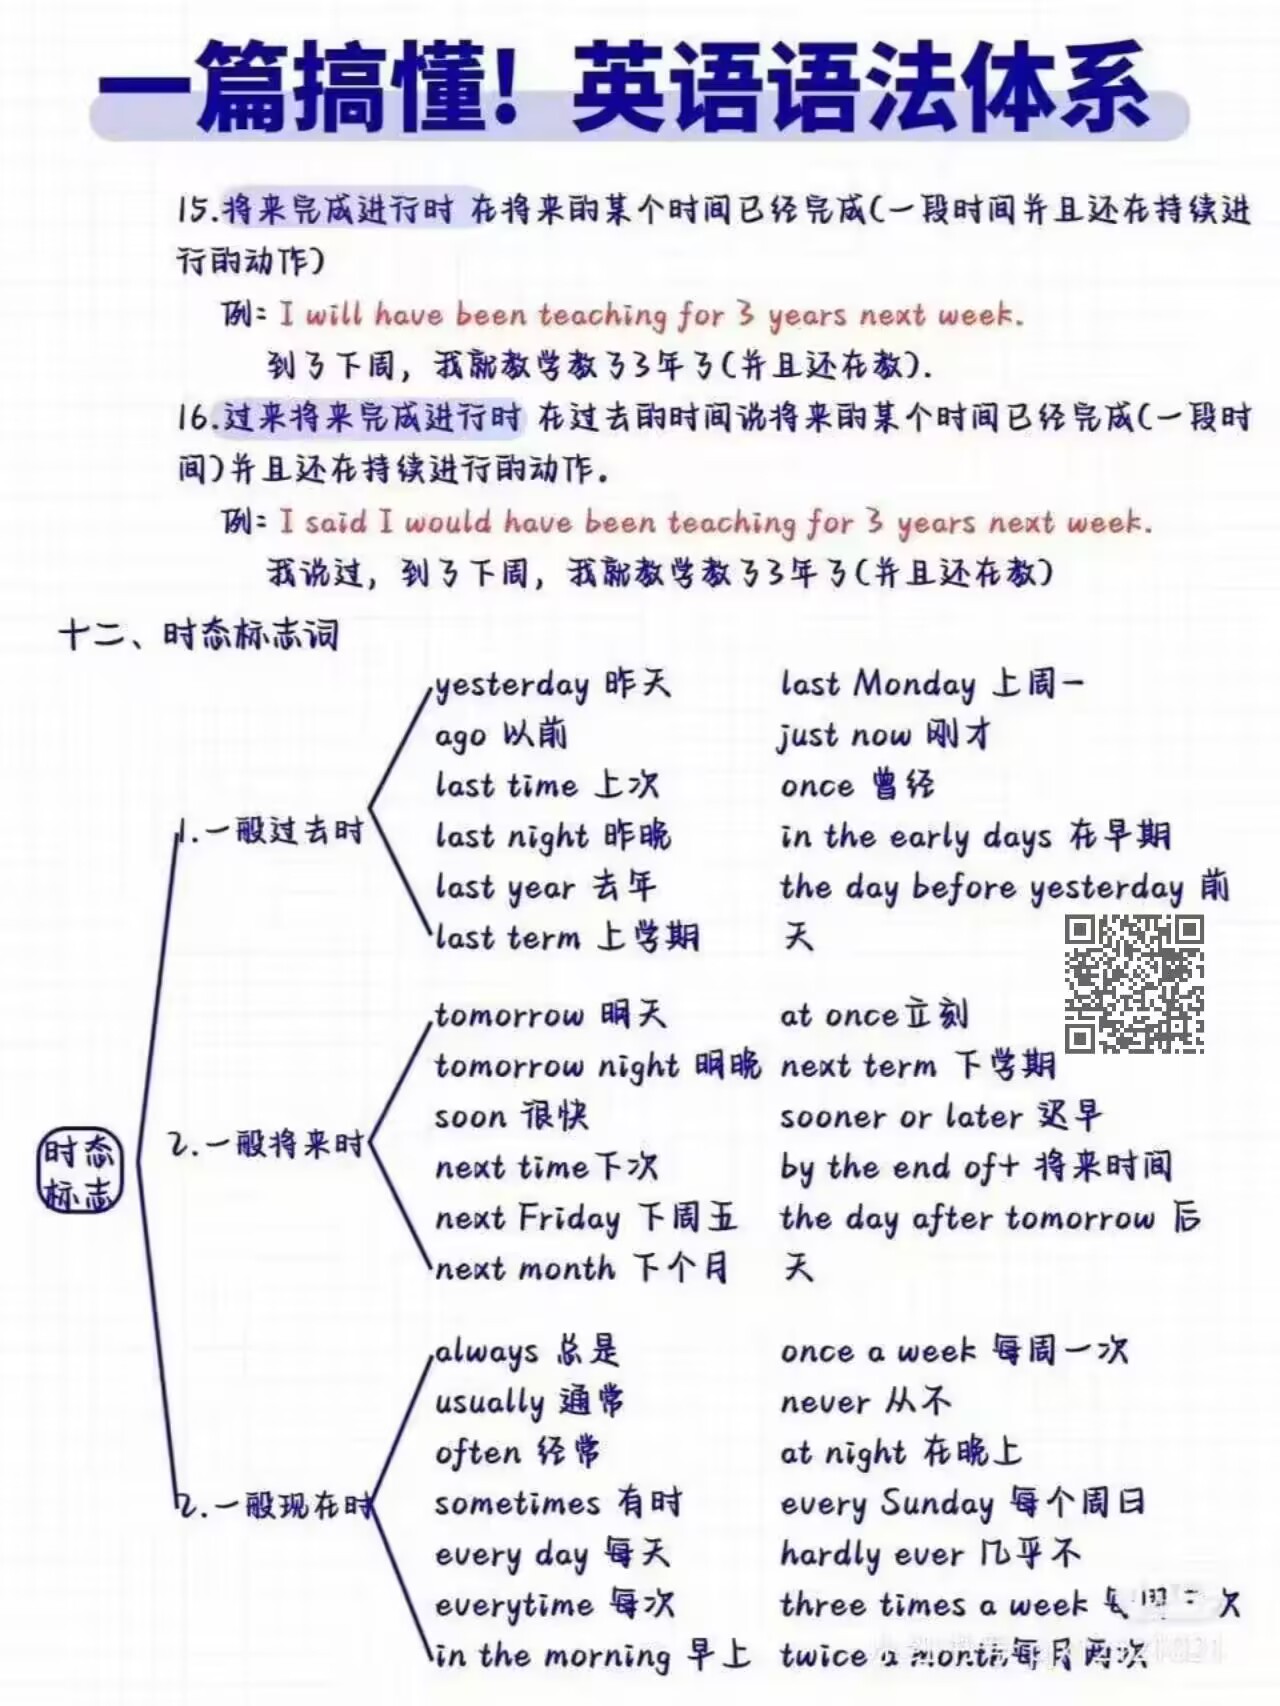 一篇搞懂！英语语法体系
15.将来完成进行时 在将来的某个时间已经完成(一段时间并且还在持续进
行的动作)
例: I will have been teaching for 3 years next week.
到了下周, 我就教学教了3年了(并且还在教).
16.过来将来完成进行时 在过去的时间说将来的某个时间已经完成(一段时
间)并且还在持续进行的动作.
例: I said I would have been teaching for 3 years next week.
我说过, 到了下周, 我就教学教了3年了(并且还在教)
十二、时态标志词
时态
标志
1.一般过去时
yesterday 昨天
ago 以前
last time 上次
last night 昨晚
last year 去年
last term 上学期
last Monday 上周一
just now 刚才
once 曾经
in the early days 在早期
the day before yesterday 前
天
2.一般将来时
tomorrow 明天
tomorrow night 明晚
soon 很快
next time下次
next Friday 下周五
next month 下个月
at once立刻
next term 下学期
sooner or later 迟早
by the end of+ 将来时间
the day after tomorrow 后
天
2.一般现在时
always 总是
usually 通常
often 经常
sometimes 有时
every day 每天
everytime 每次
in the morning 早上
once a week 每周一次
never 从不
at night 在晚上
every Sunday 每个周日
hardly ever 几乎不
three times a week 每周三次
twice a month每月两次